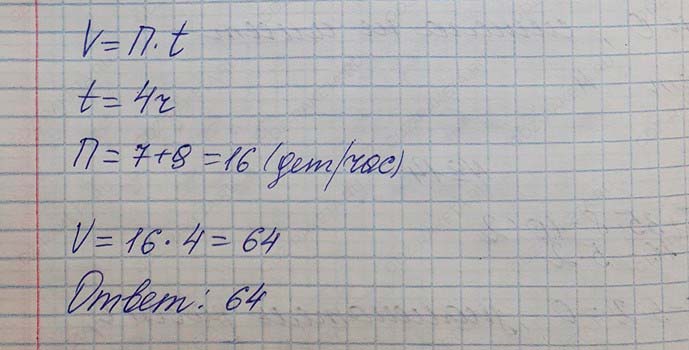 V = П · t
t = 4ч
П = 7+9 = 16 (дет/час)
V = 16 · 4 = 64
Ответ: 64